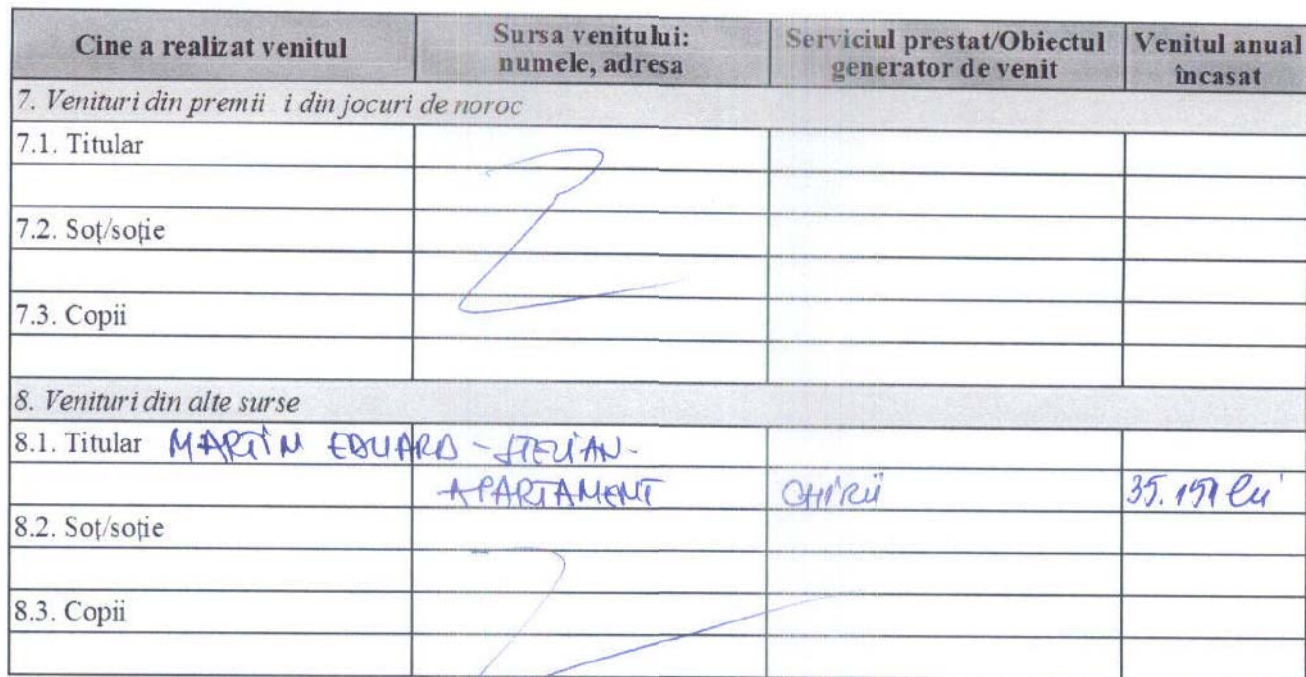 Cine a realizat venitul
Sursa venitului:
numele, adresa
Serviciul prestat/Obiectul
generator de venit
Venitul anual
încasat
7. Venituri din premii i din jocuri de noroc
7.1. Titular
7.2. Soț/soție
7.3. Copii
8. Venituri din alte surse
8.1. Titular MARTIN EDUARD-STELIAN-
APARTAMENT CHIRII lei
8.2. Soț/soție
8.3. Copii